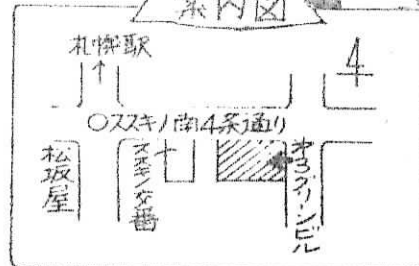 案内図
札幌駅
↑
4
○ススキノ南4条通り
松坂屋
ススキノ交番
オ3グリーンビル